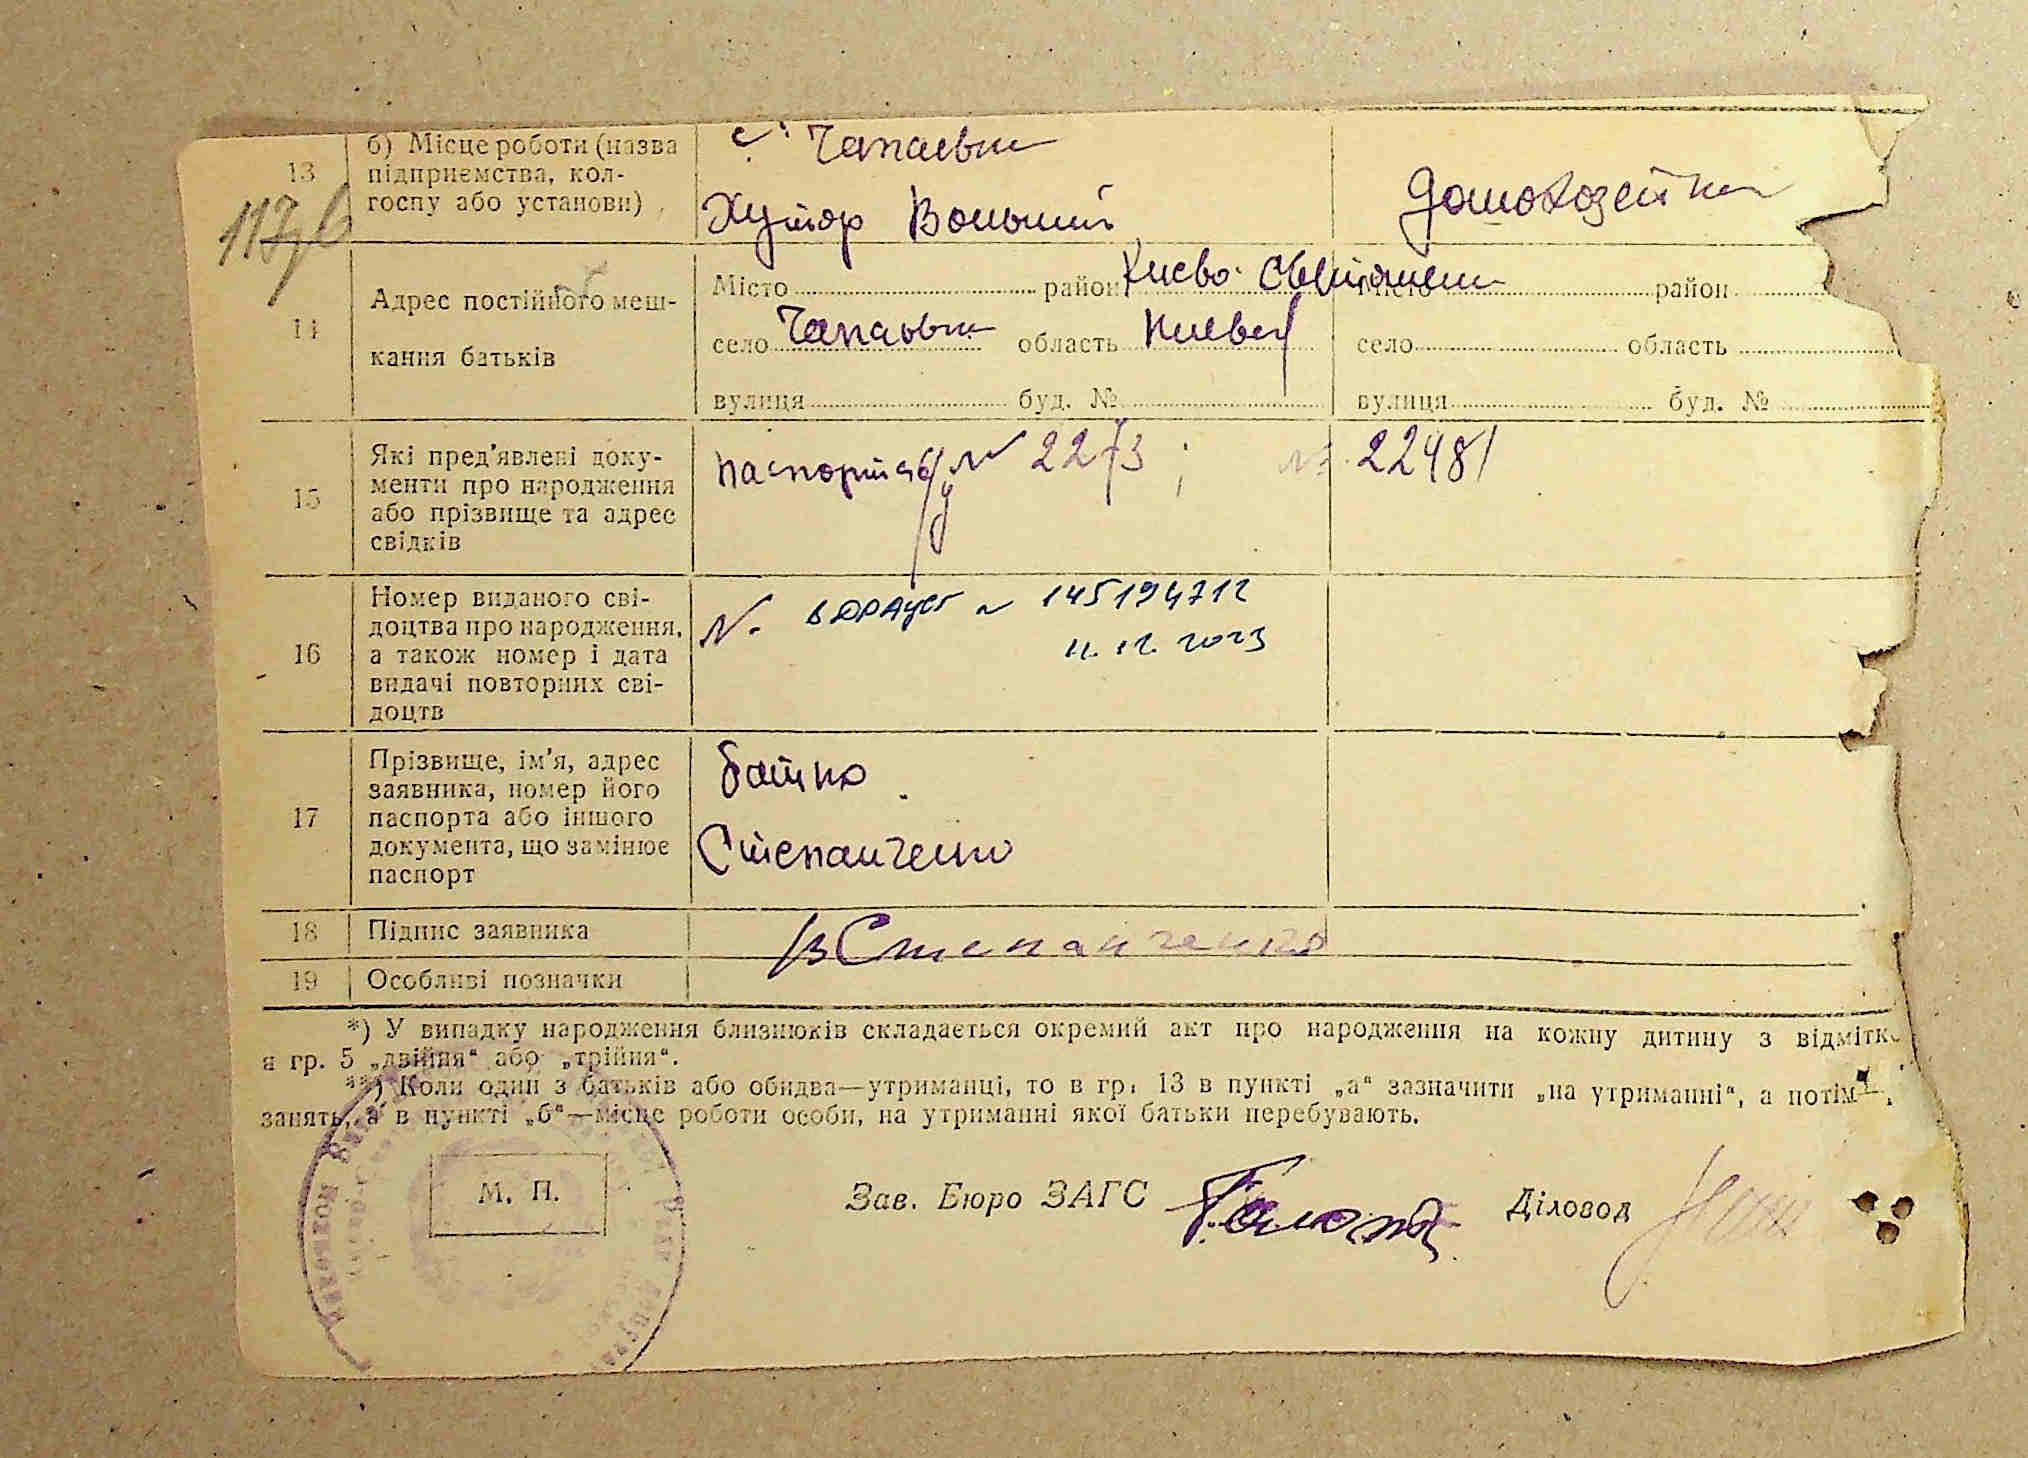 13
б) Місце роботи (назва
підприємства, кол-
госпу або установи)
с. Чапаевка
Хутор Вольний
домохозейка
117
14
Адрес постійного меш-
кання батьків
Місто район Киево-Святошин район
село Чапаевка область Киевск село область
вулиця буд. № вулиця буд. №
15
Які пред'явлені доку-
менти про народження
або прізвище та адрес
свідків
№ 2273; № 22481
16
Номер виданого сві-
доцтва про народження,
а також номер і дата
видачі повторних сві-
доцтв
№ в ДРАЦСГ № 145194712
11.12.2023
17
Прізвище, ім'я, адрес
заявника, номер його
паспорта або іншого
документа, що замінює
паспорт
батько
Степанченко
18 Підпис заявника
Степанченко
19 Особливі позначки
*) У випадку народження близнюків складається окремий акт про народження на кожну дитину з відмітко
в гр. 5 „двійня“ або „трійня“.
**) Коли один з батьків або обидва—утриманці, то в гр. 13 в пункті „а“ зазначити „на утриманні“, а потім
занять, а в пункті „б“—місце роботи особи, на утриманні якої батьки перебувають.
М. П.
Зав. Бюро ЗАГС Діловод